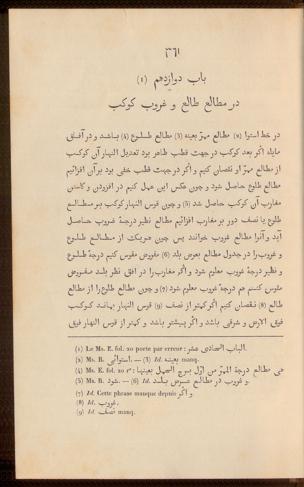 ٣٦١
باب دوازدهم (1)
در مطالع طالع و غروب كوكب
در خط استوا (2) مطالع ممرّ بعينه (3) مطالع طلوع (4) باشد و در آفاق
مايله اگر بعد كوكب در جهت قطب ظاهر بود تعديل النهار آن كوكب
از مطالع ممرّ او نقصان كنيم و اگر در جهت قطب خفى بود بر آن افزائيم
مطالع طلوع حاصل شود و چون عكس اين عمل كنيم در افزودن و كاستن
مغارب آن كوكب حاصل شد (5) و چون قوس النهار كوكب بر مطالع
طلوع يا نصف دور بر مغارب افزائيم مطالع نظير درجهٔ غروب حاصل
آيد و آنرا مطالع غروب خوانند پس چون هريك از مطالع طلوع
و غروب را در جدول مطالع بعرض بلد (6) مفروض مقوس كنيم درجهٔ طلوع
و نظير درجهٔ غروب معلوم شود و اگر مغارب را در افق نظر بلد مفروض
مقوس كنيم هم درجهٔ غروب معلوم شود (7) و چون مطالع طلوع را از مطالع
طالع (8) نقصان كنيم اگر كمتر از نصف (9) قوس النهار بماند كوكب
فوق الارض و شرقى باشد و اگر بيشتر باشد و كمتر از قوس النهار فوق
(1) Le Ms. E. fol. 20 porte par erreur: الباب الحادى عشر.
(2) Ms. B. استوائى. — (3) Id. بعينه manq.
(4) Ms. E. fol. 20 r°: هى مطالع درجة الممرّ من اوّل برج الحمل بعينها
(5) Ms. B. شود. — (6) Id. و غروب در مطالع عرض بلد.
(7) Id. Cette phrase manque depuis و اگر
(8) Id. غروب.
(9) Id. نصف manq.